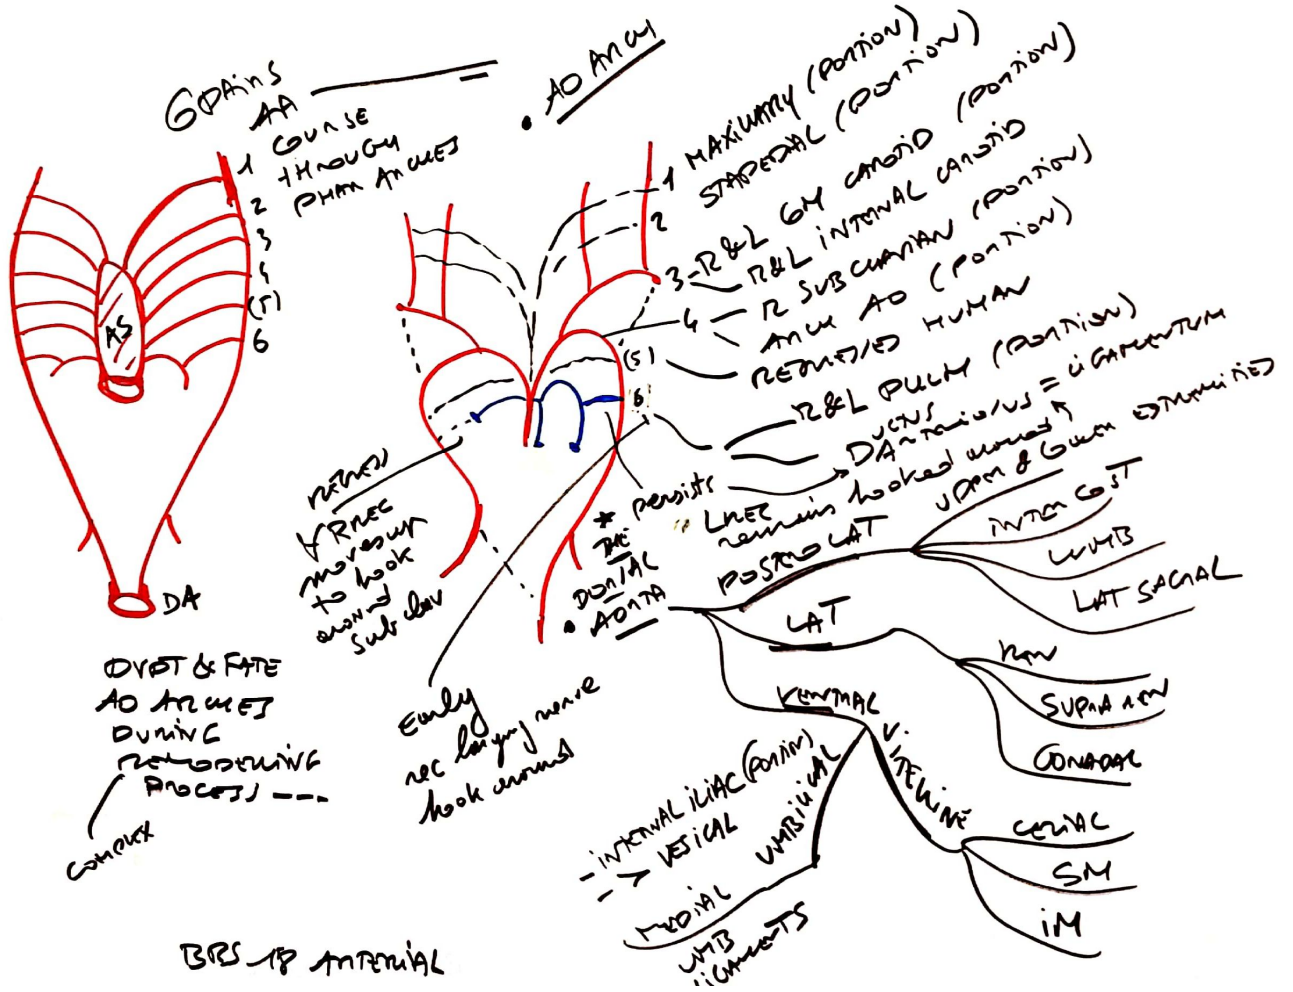 6 PAIRS
AA
COURSE
THROUGH
PHAR ARCHES
1
2
3
4
(5)
6
AS
DA
DVPT & FATE
AO ARCHES
DURING
REMODELLING
PROCESS ---
COMPLEX
BRS 18 ARTERIAL
• AO ARCH
1 MAXILLARY (PORTION)
2
STAPEDIAL (PORTION)
3 - R&L COM CAROTID (PORTION)
R&L INTERNAL CAROTID
4
R SUBCLAVIAN (PORTION)
ARCH AO (PORTION)
(5)
REGRESSES HUMAN
6
R&L PULM (PORTION)
DUCTUS
ARTERIOSUS = LIGAMENTUM
persists
LREC
remains hooked around
REGRESS
RREC
moves up
to hook
around
Subclav
Early
rec laryng nerve
hook around
*
THE
• DORSAL
AORTA
POSTERO LAT
UPPER & LOWER EXTREMITIES
INTERCOST
LUMB
LAT SACRAL
LAT
REN
SUPRAREN
GONADAL
VENTRAL
VITELLINE
CELIAC
SM
IM
UMBILICAL
- INTERNAL ILIAC (PORTION)
--> VESICAL
MEDIAL
UMB
LIGAMENTS